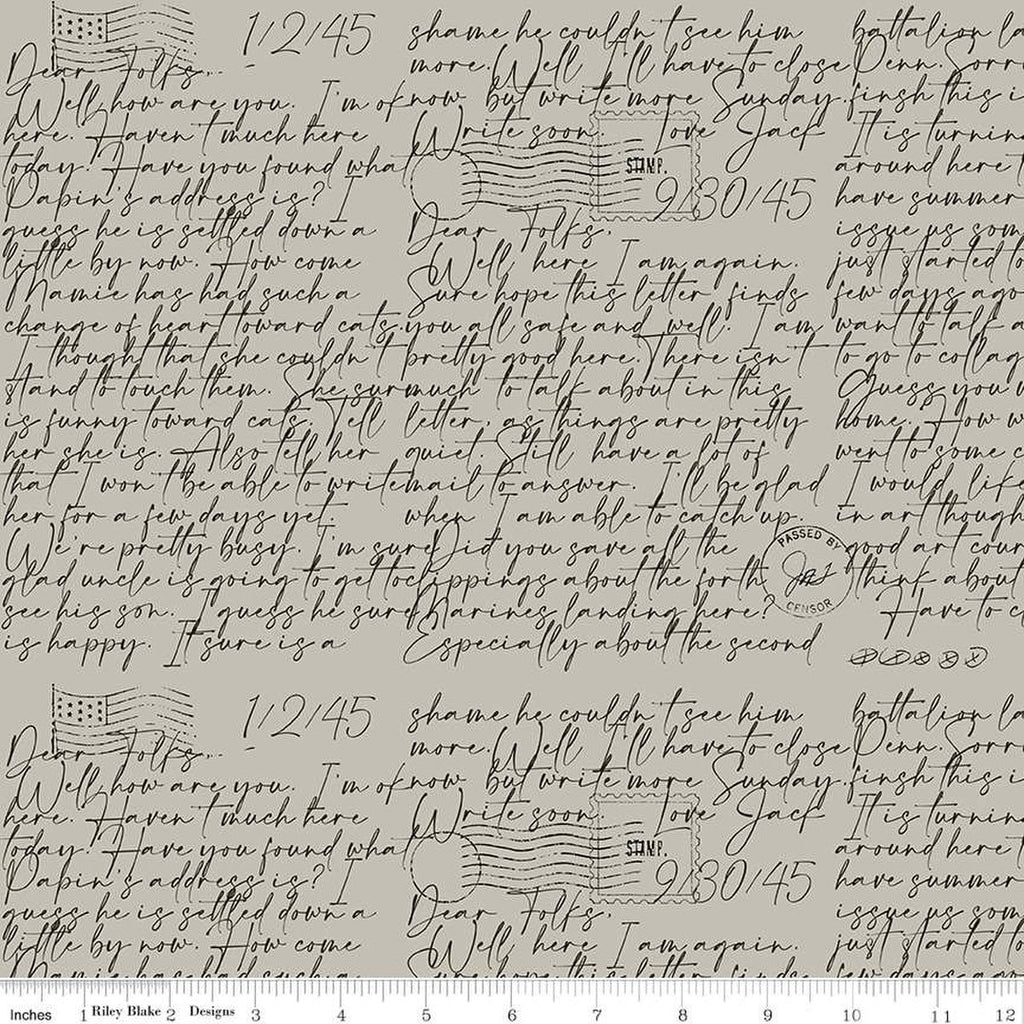 1/2/45
Dear Folks,
Well, how are you. I'm ok
here. Haven't much here
today. Have you found what
Papin's address is? I
guess he is settled down a
little by now. How come
Mamie has had such a
change of heart toward cats.
I thought that she couldn't
stand to touch them. She sur
is funny toward cats. Tell
her she is. Also tell her
that I won't be able to write
her for a few days yet.
We're pretty busy. I'm sure
glad uncle is going to get to
see his son. I guess he sure
is happy. It sure is a
shame he couldn't see him
more. Well I'll have to close
now, but write more Sunday.
Write soon. Love Jack
STAMP.
9/30/45
Dear Folks.
Well, here I am again.
Sure hope this letter finds
you all safe and well. I am
pretty good here. There isn't
much to talk about in this
letter, as things are pretty
quiet. Still have a lot of
mail to answer. I'll be glad
when I am able to catch up.
Did you save all the
clippings about the forth
Marines landing here?
Especially about the second
PASSED BY
CENSOR
battalion la
Penn. Sorr
finsh this i
It is turnin
around here t
have summer
issue us som
just started to
few days ago
want to talk a
to go to collag
Guess you w
home. How w
went to some c
I would like
in art though
good art cour
think about
Have to c
1/2/45
Dear Folks,
Well, how are you. I'm ok
here. Haven't much here
today. Have you found what
Papin's address is? I
guess he is settled down a
little by now. How come
Mamie has had such a
shame he couldn't see him
more. Well I'll have to close
now, but write more Sunday.
Write soon. Love Jack
STAMP.
9/30/45
Dear Folks.
Well, here I am again.
Sure hope this letter finds
battalion la
Penn. Sorr
finsh this i
It is turnin
around here t
have summer
issue us som
just started to
few days ago
Inches 1 Riley Blake 2 Designs 3 4 5 6 7 8 9 10 11 12